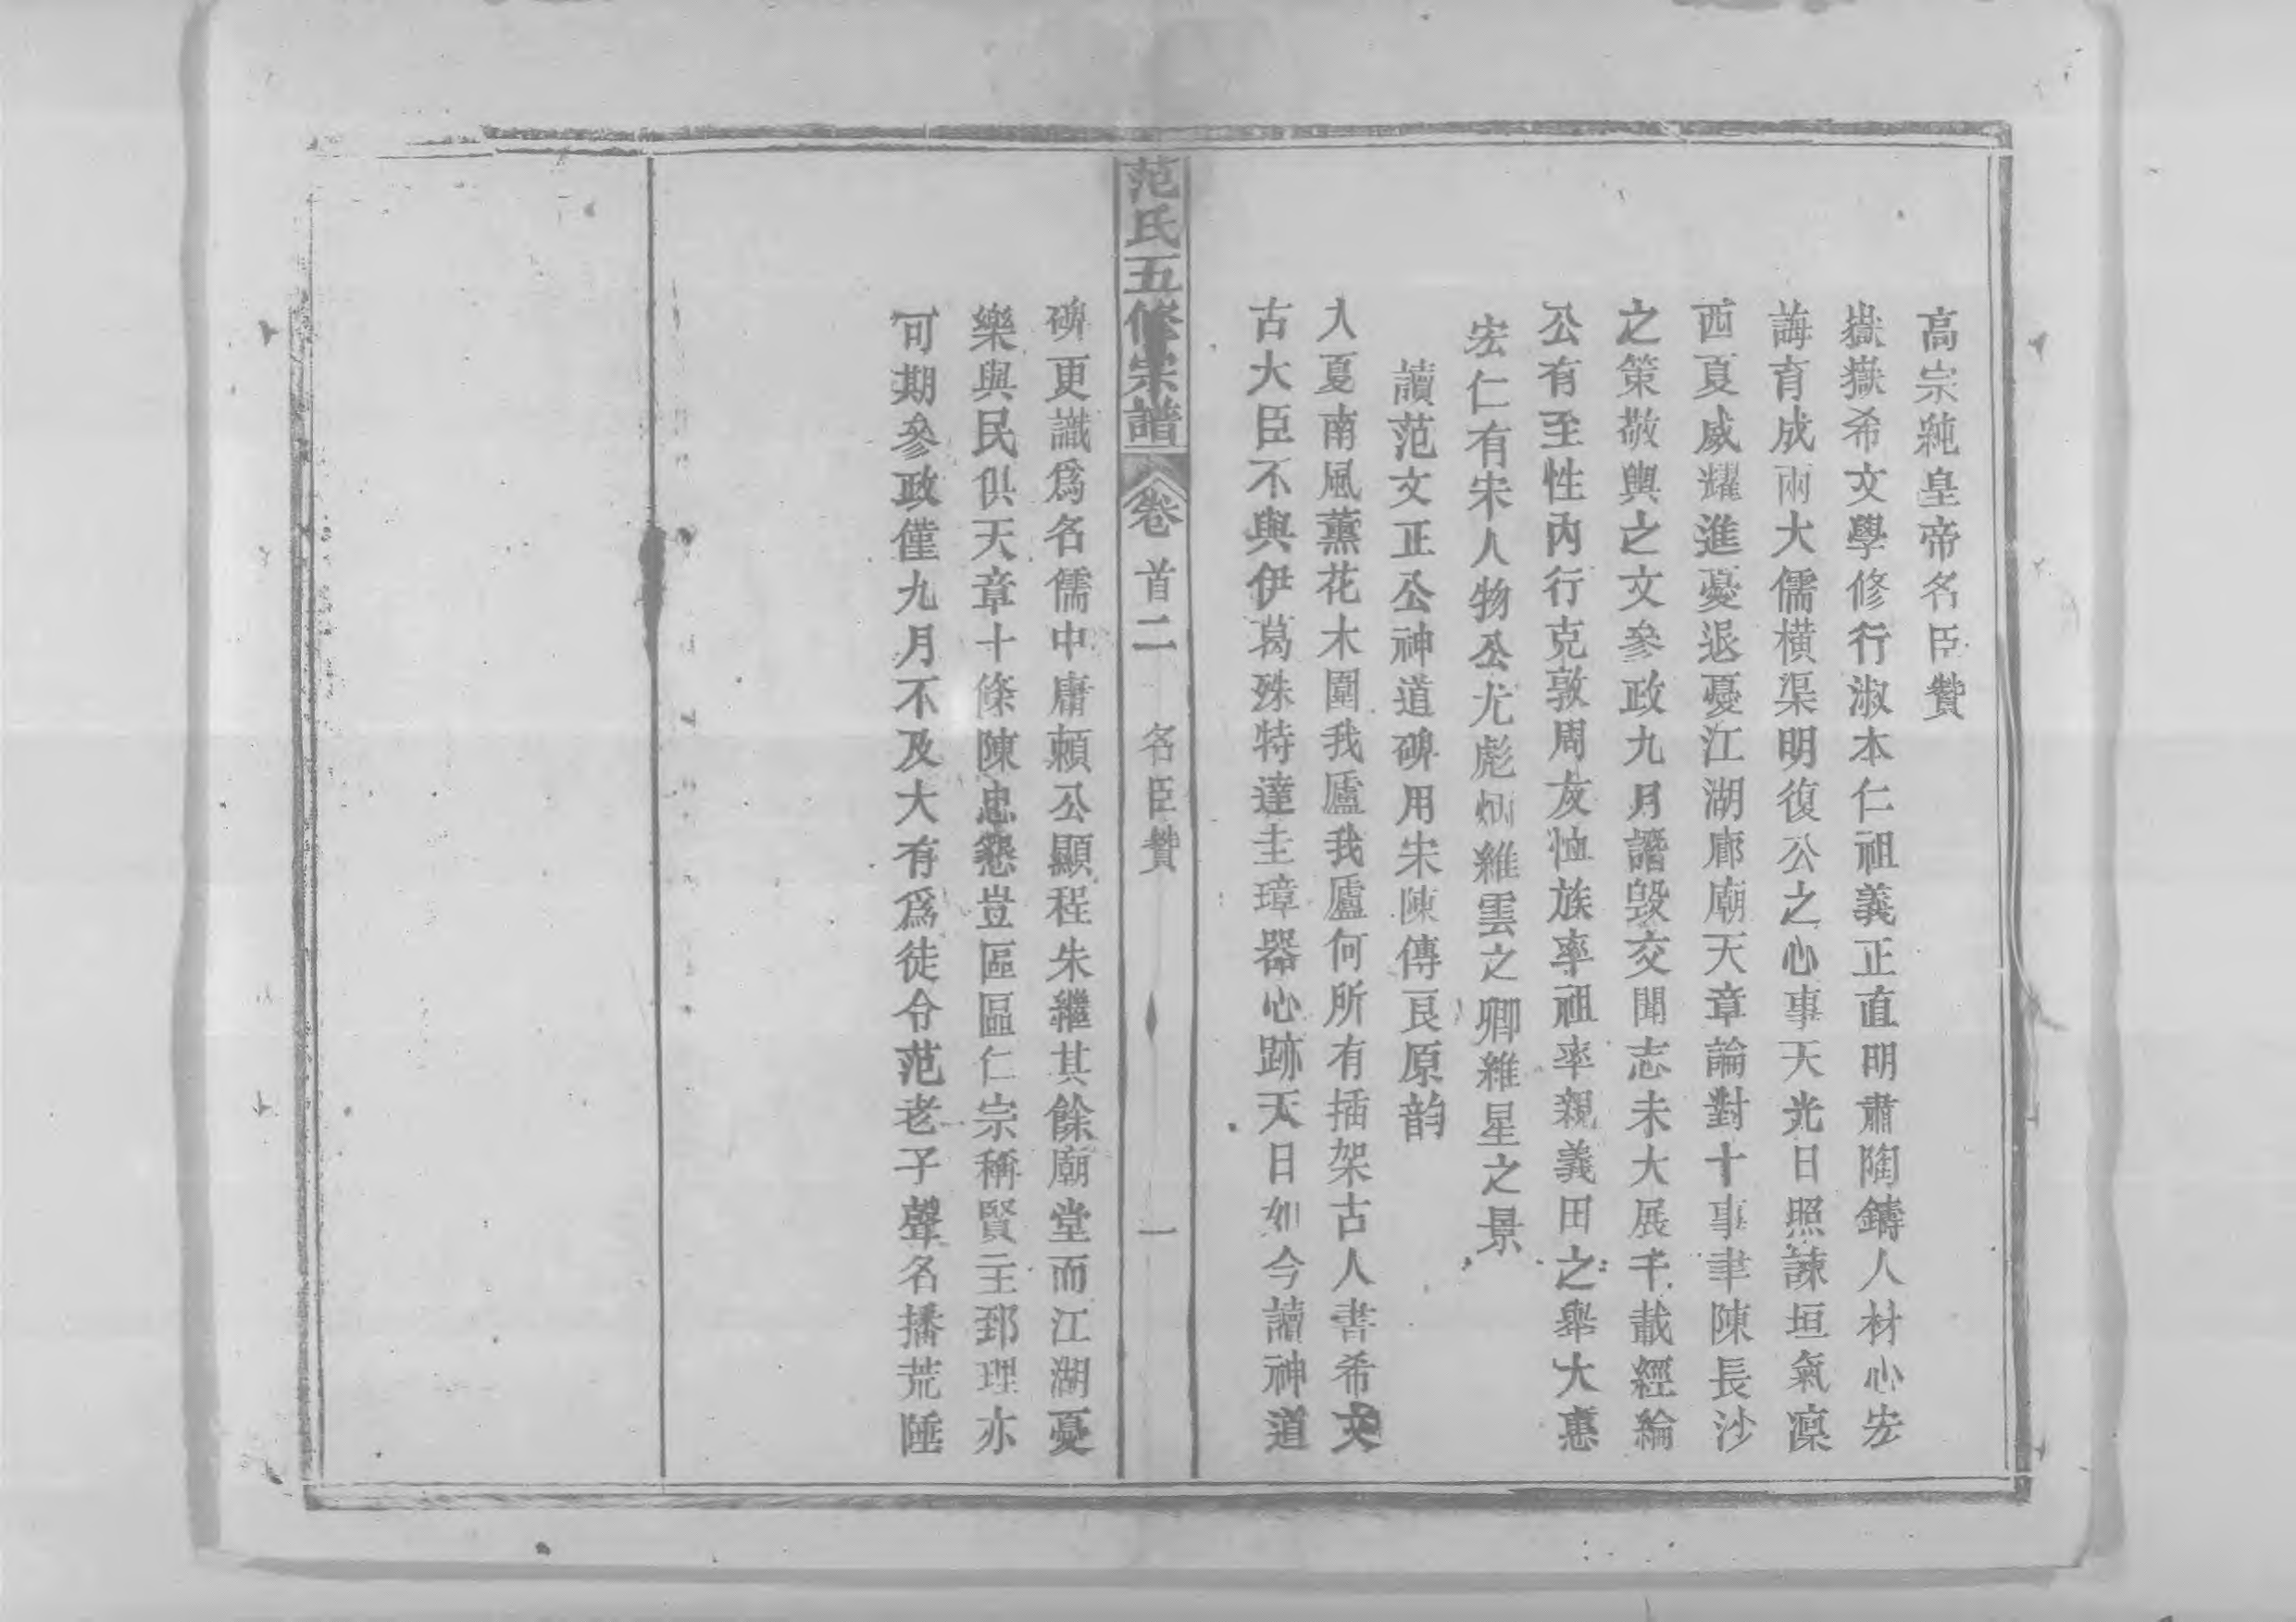 高宗純皇帝名臣贊
嶽嶽希文學修行淑本仁祖義正直明肅陶鑄人材心宏
誨育成兩大儒橫渠明復公之心事天光日照諫垣氣凜
西夏威耀進憂退憂江湖廊廟天章論對十事聿陳長沙
之策敬輿之文參政九月譖毀交聞志未大展千載經綸
公有至性內行克敦周友恤族率祖率親義田之舉大惠
宏仁有宋人物公尤彪炳維雲之卿維星之景
讀范文正公神道碑用宋陳傅良原韵
入夏南風薰花木圍我廬我廬何所有插架古人書希文
古大臣不與伊葛殊特達圭璋器心跡天日如今讀神道
范氏五修宗譜 卷首二 名臣贊 一
碑更識爲名儒中庸賴公顯程朱繼其餘廟堂而江湖憂
樂與民俱天章十條陳忠懇豈區區仁宗稱賢主郅理亦
可期參政僅九月不及大有爲徒令范老子聲名播荒陲